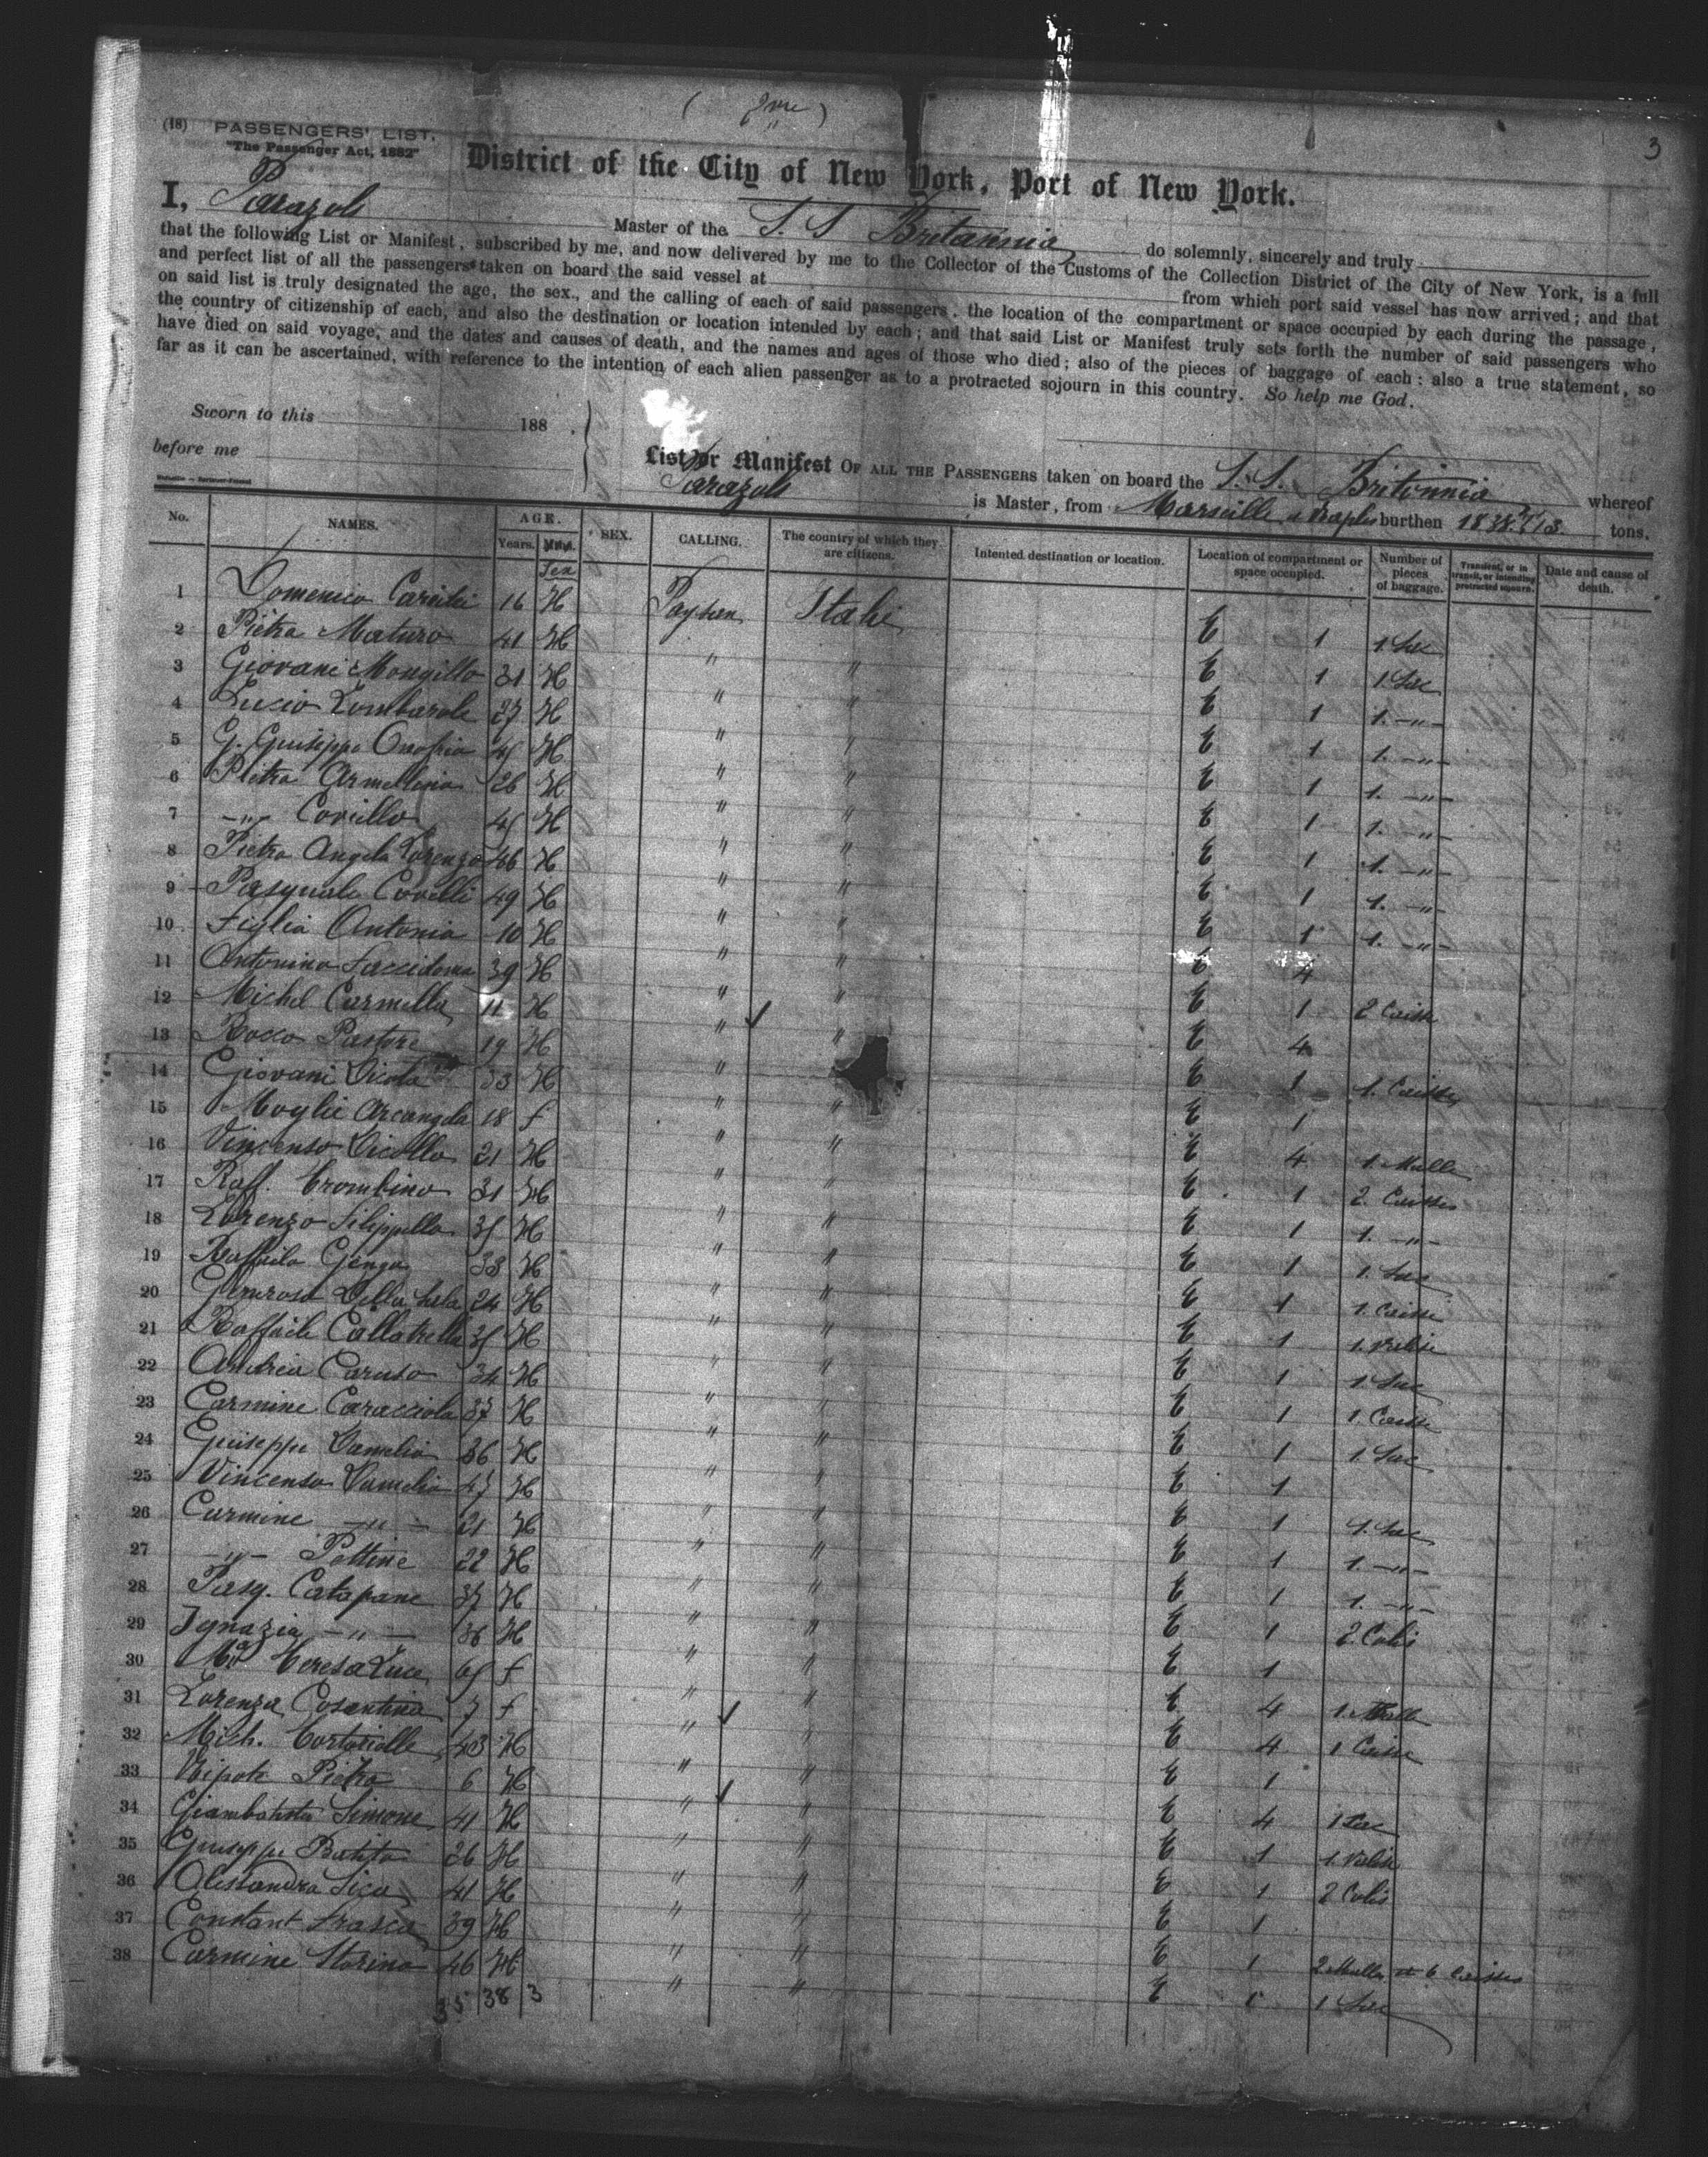 3
(18) PASSENGERS' LIST.
"The Passenger Act, 1882"
District of the City of New York, Port of New York.
I, Parazols Master of the S. S Britannia do solemnly, sincerely and truly
that the following List or Manifest, subscribed by me, and now delivered by me to the Collector of the Customs of the Collection District of the City of New York, is a full
and perfect list of all the passengers taken on board the said vessel at from which port said vessel has now arrived; and that
on said list is truly designated the age, the sex., and the calling of each of said passengers, the location of the compartment or space occupied by each during the passage,
the country of citizenship of each, and also the destination or location intended by each; and that said List or Manifest truly sets forth the number of said passengers who
have died on said voyage, and the dates and causes of death, and the names and ages of those who died; also of the pieces of baggage of each: also a true statement, so
far as it can be ascertained, with reference to the intention of each alien passenger as to a protracted sojourn in this country. So help me God.
Sworn to this 188 .
before me
List or Manifest OF ALL THE PASSENGERS taken on board the S. S. Britannia whereof
Parazols is Master, from Marseille & Naples burthen tons.
No. NAMES. AGE. Years. Sex SEX. CALLING. The country of which they are citizens. Intented destination or location. Location of compartment or space occupied. Number of pieces of baggage. Transient, or in transit, or intending protracted sojourn. Date and cause of death.
1 Domenico 16 H Italie E 1 1 Sac
2 Pietra Maturo 41 H " " E 1 1 Sac
3 Giovani Mongillo 31 H " " E 1 1. -"-
4 Lucio Lombarde 27 H " " E 1 1. -"-
5 G. Guiseppe Onofrio 45 H " " E 1 1. -"-
6 Pietra Armellina 26 H " " E 1 1. -"-
7 -"- Coviello 45 H " " E 1 1. -"-
8 Pietra Angela Lorenzo 46 H " " E 1 1. -"-
9 Pasquale Covelli 49 H " " E 1 1. -"-
10 Figlia Antonia 10 H " " E 4
11 Antonino 39 H " " E 1 2 Caisse
12 Michel Carmella 11 H " " E 4
13 Rocco Pastore 19 H " " E 1 1. Caisse
14 Giovani Vicola 33 H " " E 1
15 Moglie Arcangela 18 f " " E 4 1 Malle
16 Vincenso Vicolla 21 H " " E 1 2. Caisses
17 Raff. Trombino 31 H " " E 1 1. -"-
18 Lorenzo Filippella 35 H " " E 1 1. Sac
19 Raffaile Genga 33 H " " E 1 1. Caisse
20 Generosa Della 24 H " " E 1 1. Valise
21 Raffaele Callatrella 35 H " " E 1 1. Sac
22 Andrea Caruso 34 H " " E 1 1. Caisse
23 Carmine Caracciola 37 H " " E 1 1. Sac
24 Guiseppe Vamelia 36 H " " E 1
25 Vincenso Vamelia 47 H " " E 1 1. Sac
26 Carmine -"- 21 H " " E 1 1. -"-
27 -"- Pettine 22 H " " E 1 1. -"-
28 Pasq. Catapane 37 H " " E 1 2 Colis
29 Ignazia -"- 36 H " " E 1
30 Teresa Luce 65 f " " E 4 1. Malle
31 Lorenza Cosantina 7 f " " E 4 1 Caisse
32 Mich. Tortoriello 43 H " " E 1
33 Nipote Pietro 6 H " " E 4 1 Sac
34 Giambatista Simone 41 H " " E 1 1. Valise
35 Guiseppe Batista 26 H " " E 1 2 Colis
36 Alessandra Sica 41 H " " E 1
37 Constant Frasca 39 H " " E 1 2 Malles et 6 Caisses
38 Carmine Storino 46 H " " E 1 1 Sac
35 38 3